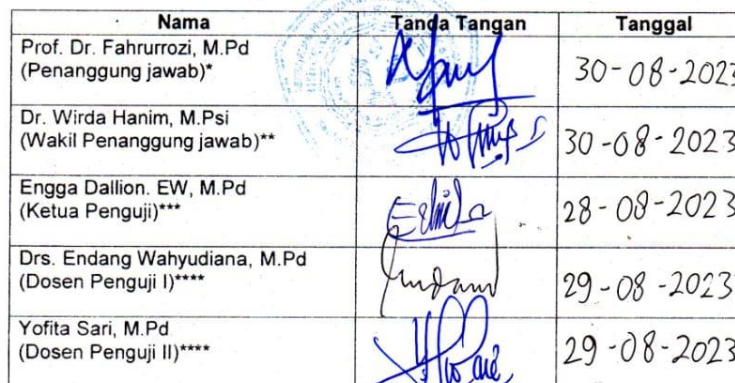 Nama Tanda Tangan Tanggal
Prof. Dr. Fahrurrozi, M.Pd
(Penanggung jawab)* 30-08-2023
Dr. Wirda Hanim, M.Psi
(Wakil Penanggung jawab)** 30-08-2023
Engga Dallion. EW, M.Pd
(Ketua Penguji)*** 28-08-2023
Drs. Endang Wahyudiana, M.Pd
(Dosen Penguji I)**** 29-08-2023
Yofita Sari, M.Pd
(Dosen Penguji II)**** 29-08-2023